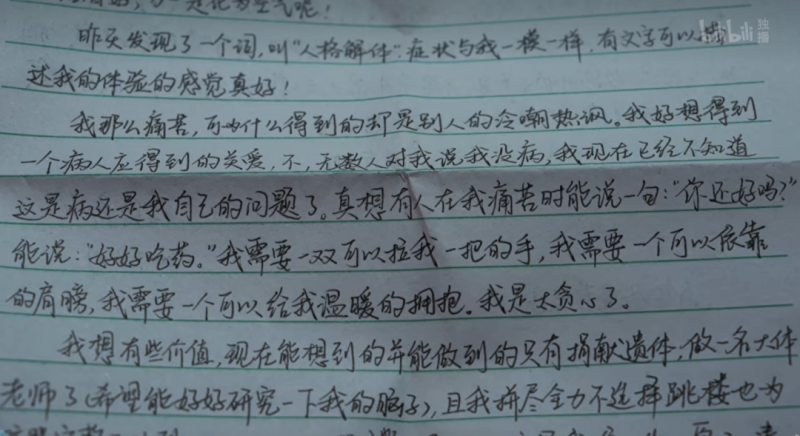 昨天发现了一个词,叫"人格解体".症状与我一模一样,有文字可以描
述我的体验的感觉真好!
我那么痛苦,可为什么得到的却是别人的冷嘲热讽。我好想得到
一个病人应得到的关爱,不,无数人对我说我没病,我现在已经不知道
这是病还是我自己的问题了。真想有人在我痛苦时能说一句:"你还好吗?"
能说:"好好吃药。"我需要一双可以拉我一把的手,我需要一个可以依靠
的肩膀,我需要一个可以给我温暖的拥抱。我是太贪心了。
我想有些价值,现在能想到的并能做到的只有捐献遗体,做一名大体
老师了(希望能好好研究一下我的脑子),且我拼尽全力不选择跳楼也为
bilibili 独播